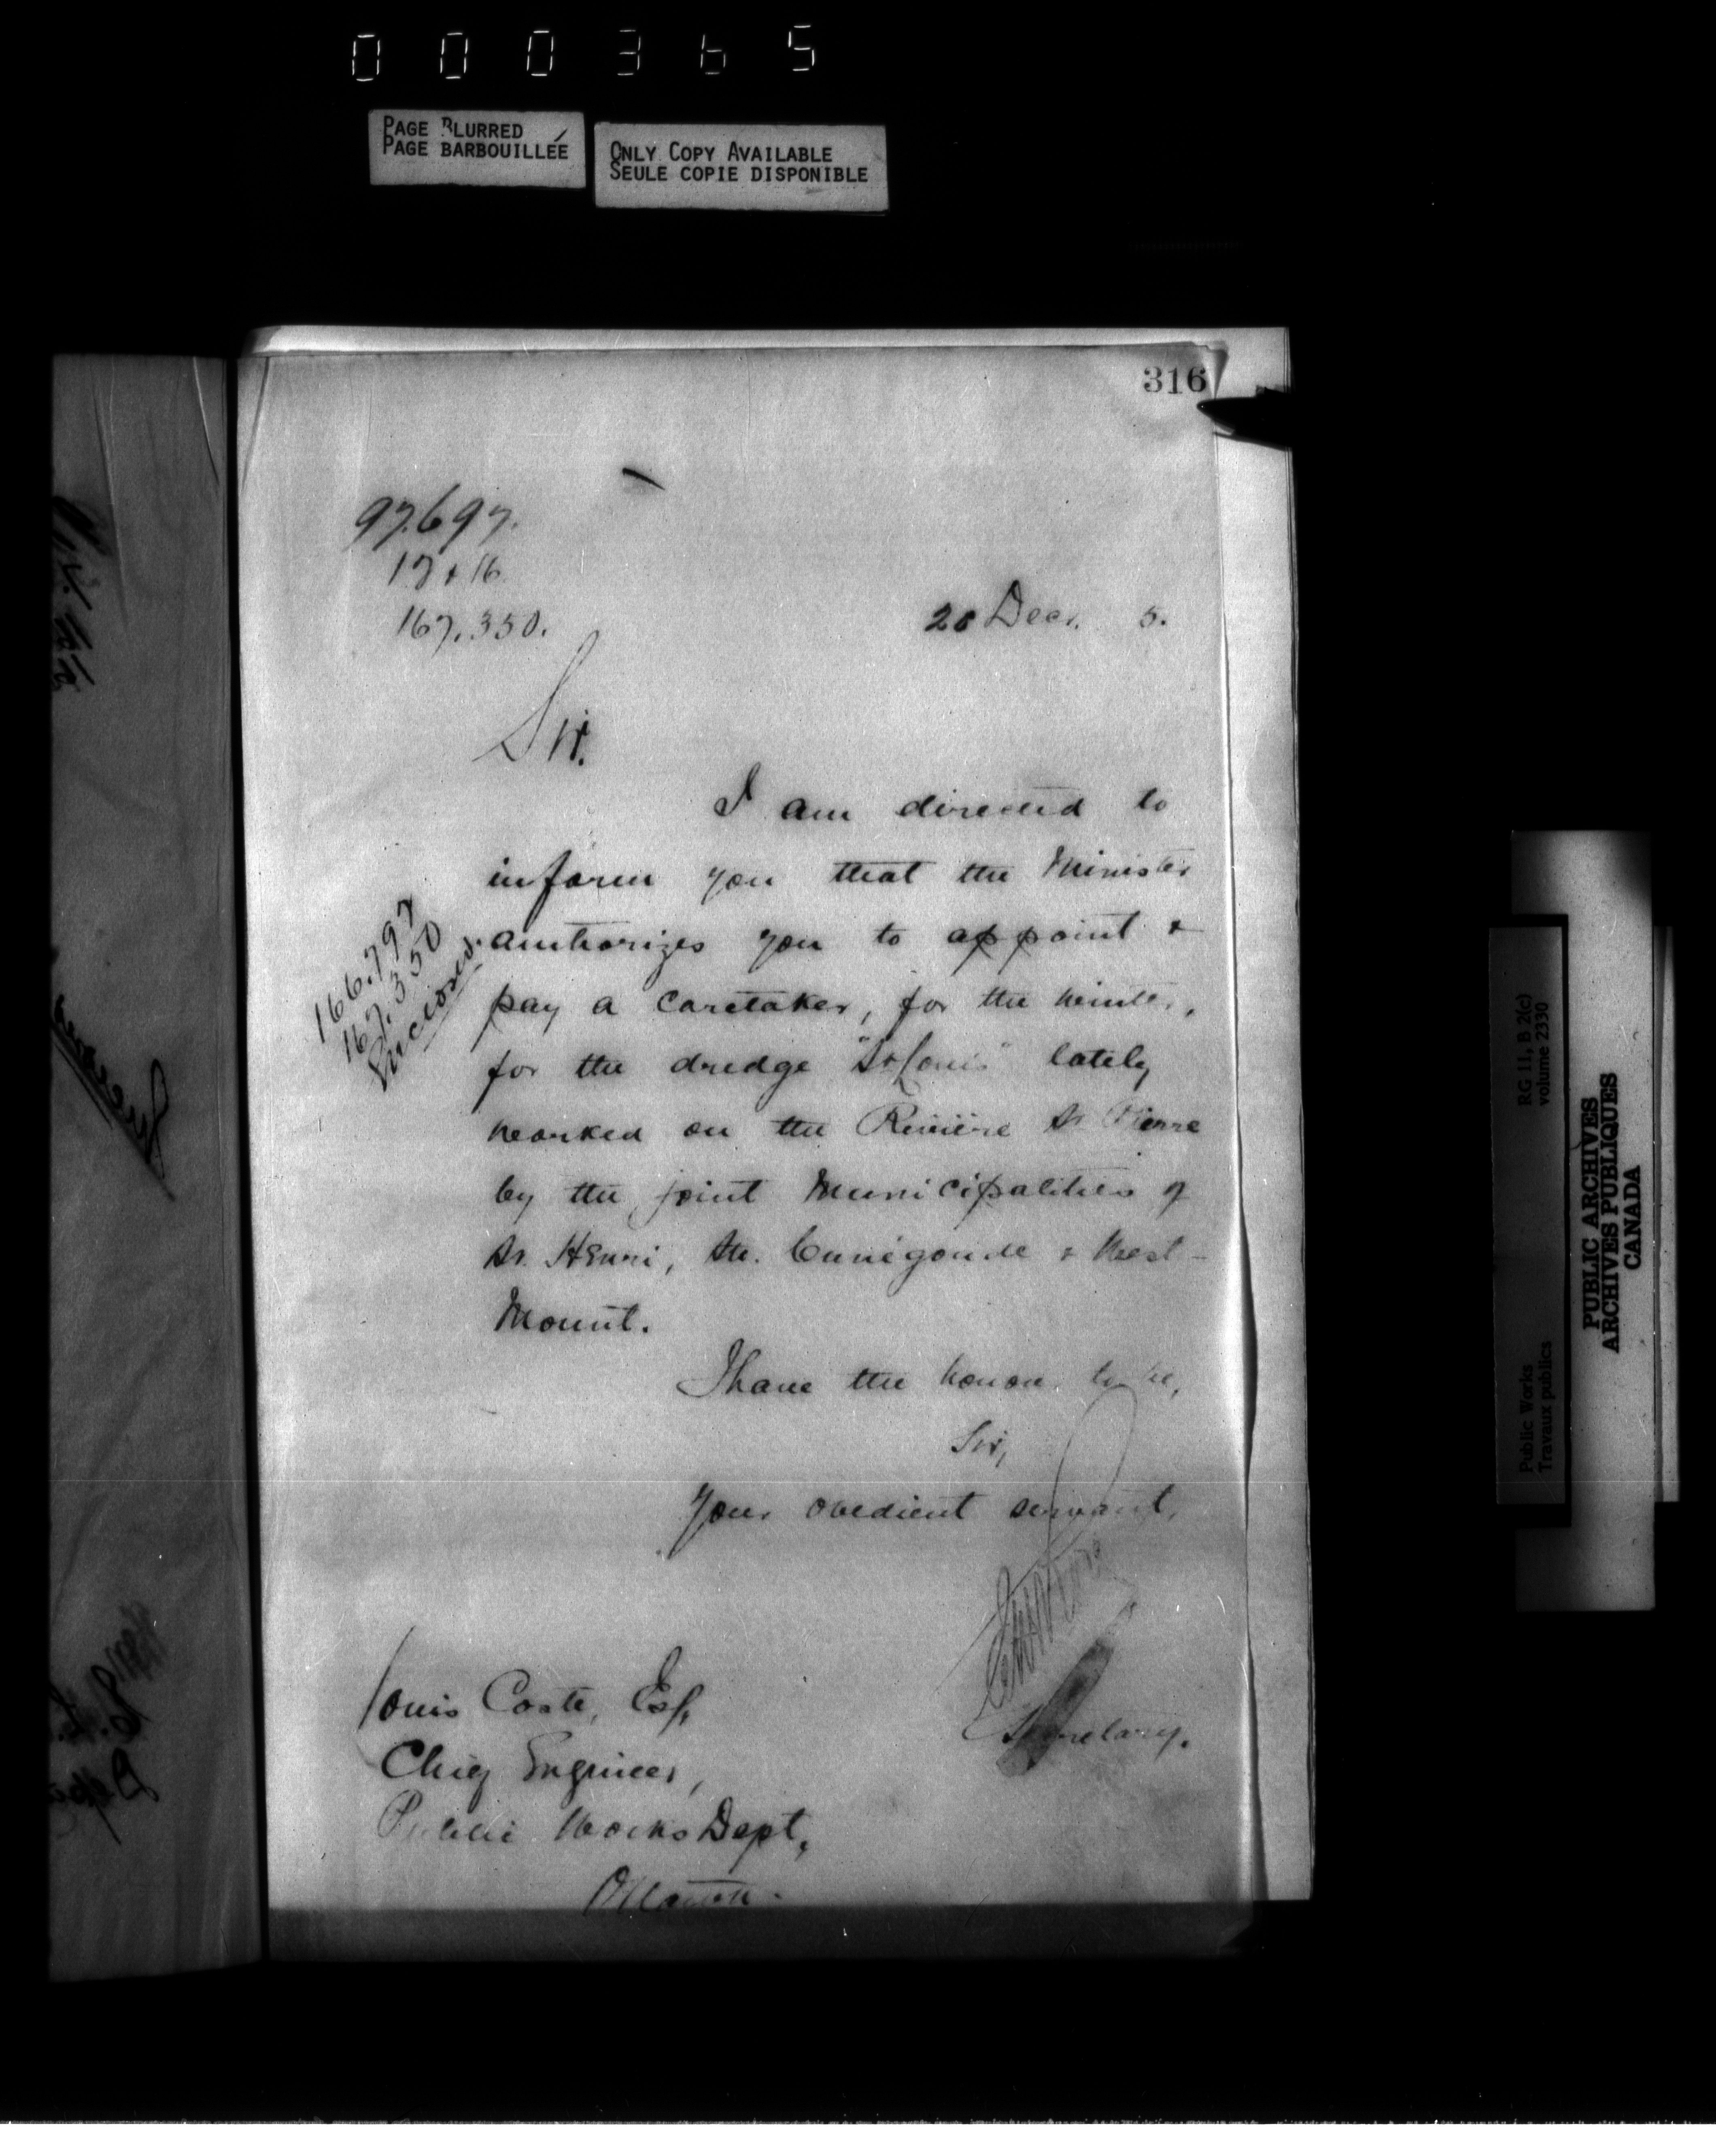 000365
PAGE BLURRED
PAGE BARBOUILLÉE
ONLY COPY AVAILABLE
SEULE COPIE DISPONIBLE
316
97.697.
17 & 16
167,350.
28 Decr. 5.
Sir.
I am directed to
inform you that the Minister
authorizes you to appoint &
pay a caretaker, for the winter,
for the dredge "St Louis" lately
worked on the Rivière St Pierre
by the joint Municipalities of
St. Henri, Ste. Cunégonde & West-
Mount.
166.797
167.350
Enclosed.
I have the honor to be,
Sir,
Your obedient servant,
Secretary.
Louis Coste, Esq,
Chief Engineer,
Public Works Dept,
Ottawa.
RG 11, B 2(c)
volume 2330
Public Works
Travaux publics
PUBLIC ARCHIVES
ARCHIVES PUBLIQUES
CANADA